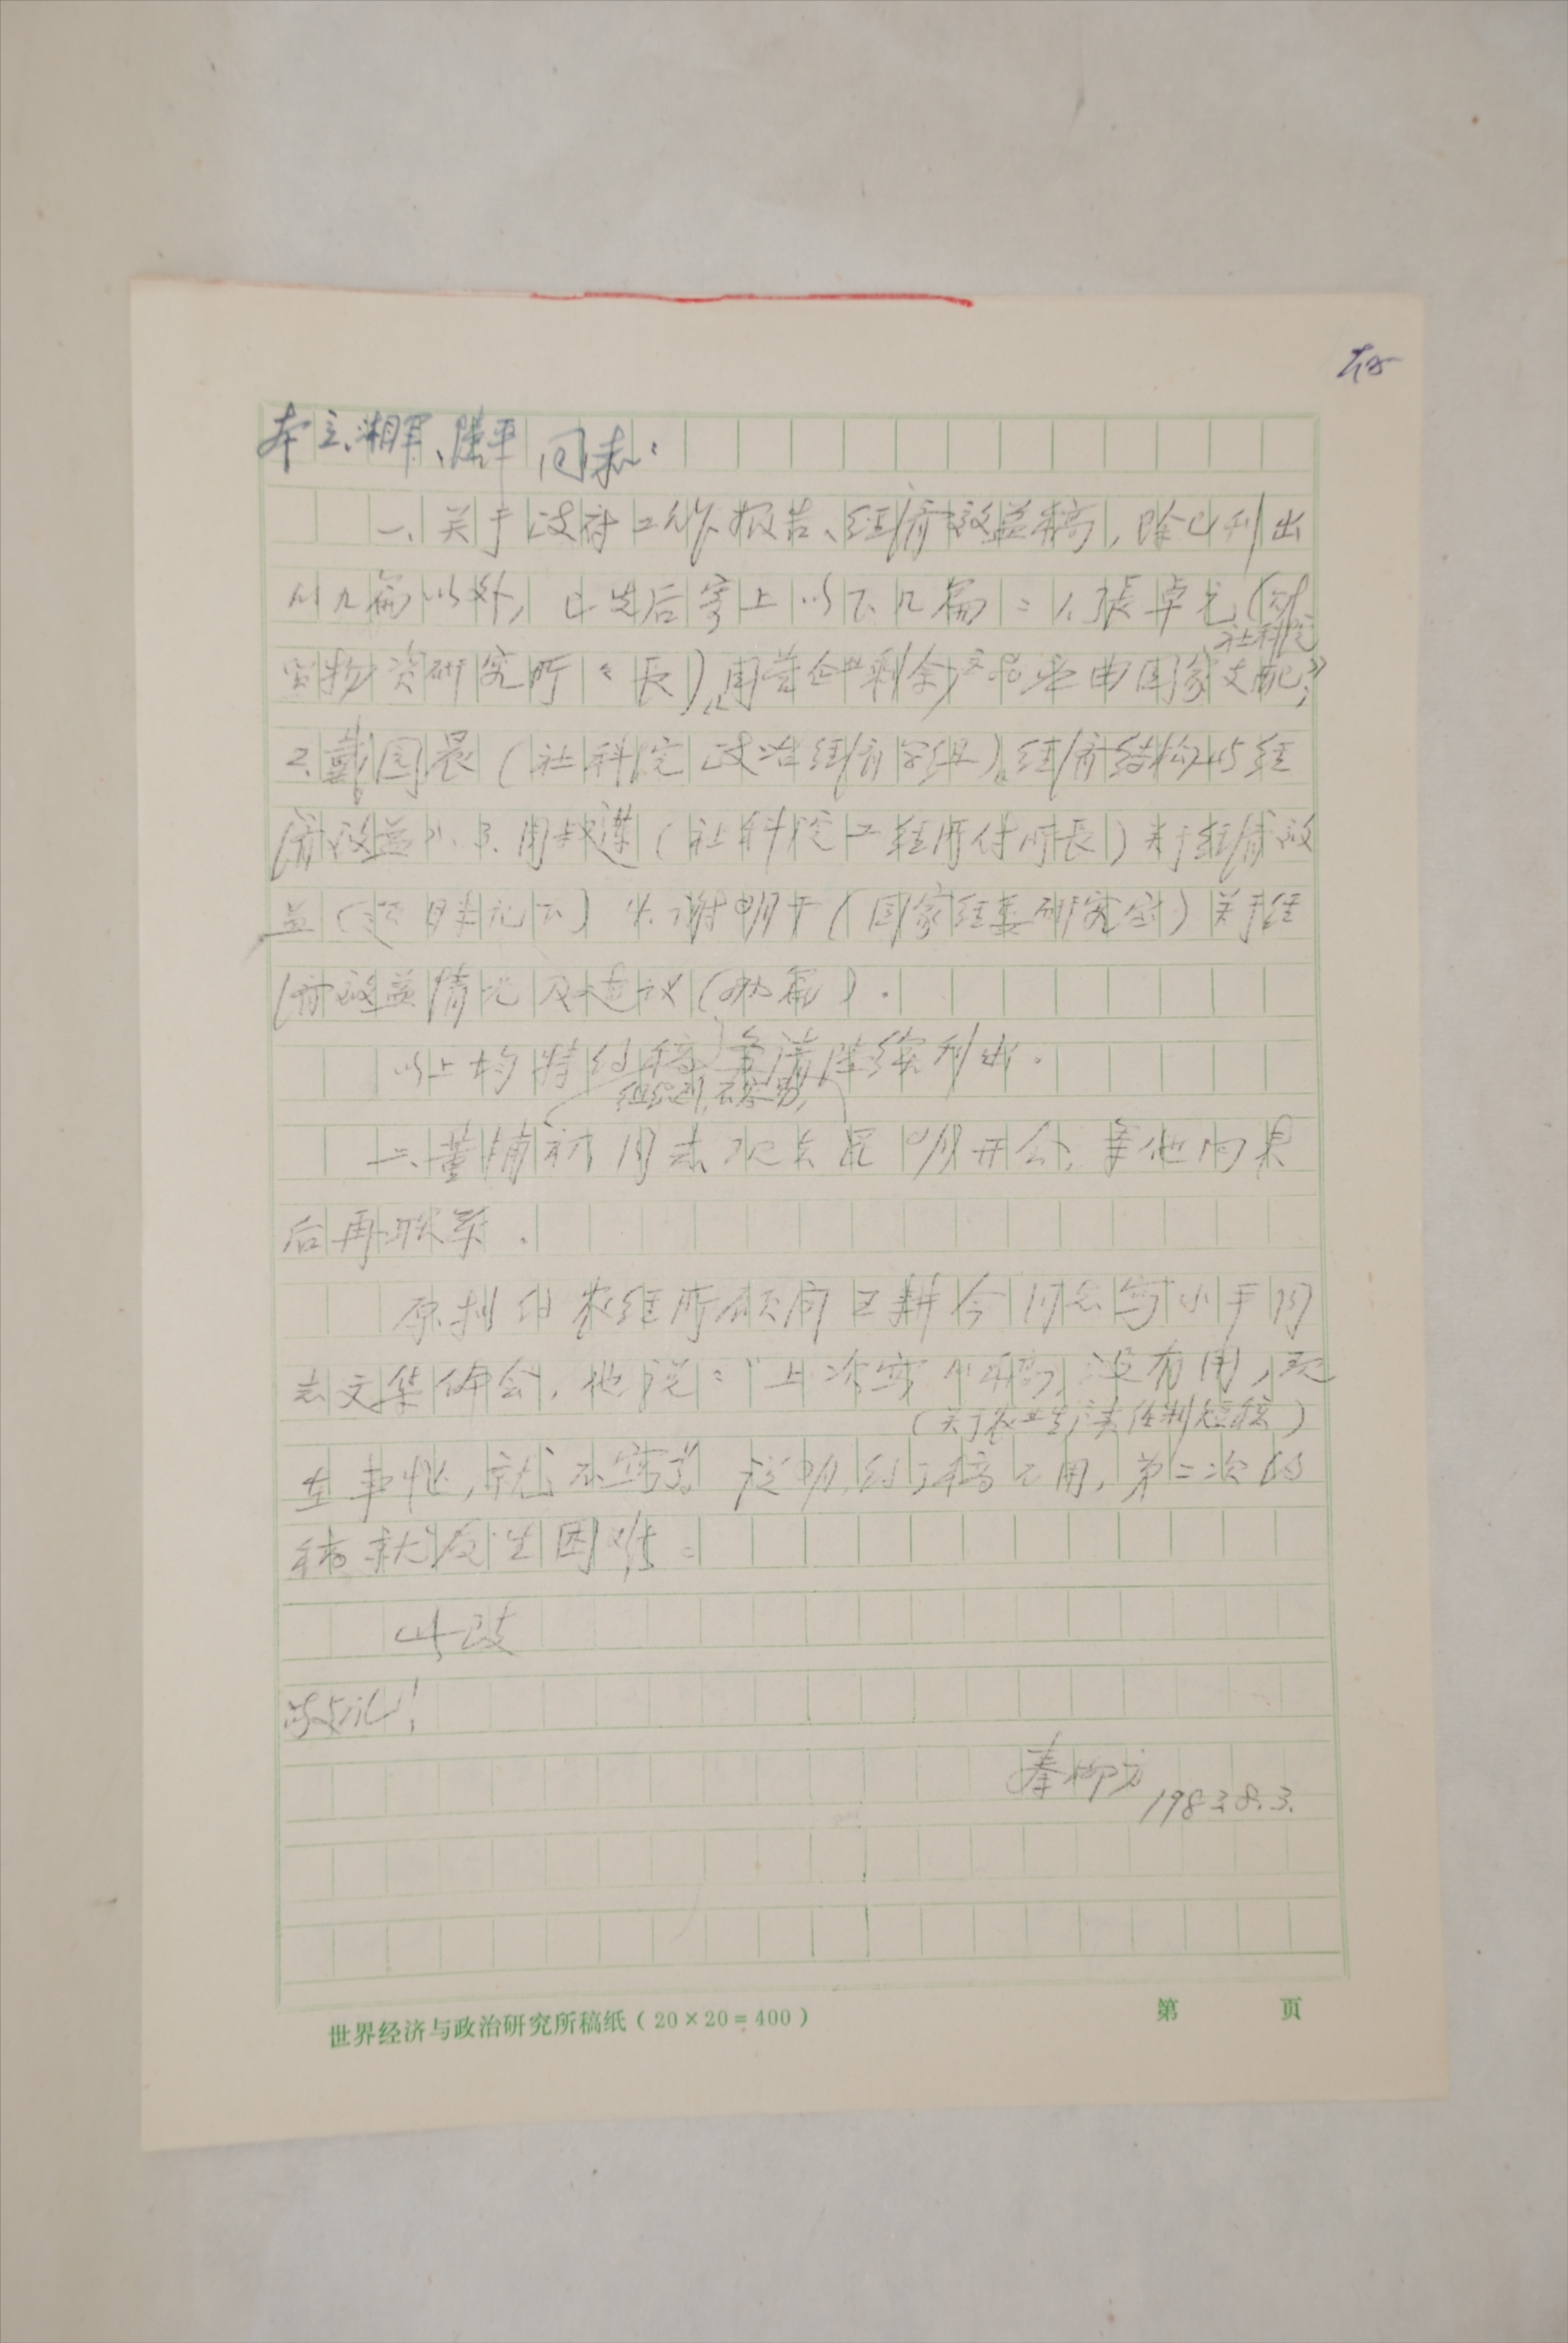 本立、湘军、陆平同志:
一、关于政府工作报告、经济效益稿,除已刊出
的几篇以外,已先后寄上以下几篇:1.張卓元(财
社科院
贸物资研究所所長)“国营企业剩余产品要由国家支配”;
2.戴园晨(社科院政治经济学组)“经济结构与经
济效益”、3.周叔莲(社科院工经所付所長)关于经济效
益(题目未记下)4.谢明干(国家经委研究室)关于经
济效益情况及建议(两篇)。
以上均特约稿,希請陆续刊出。
组织到,不容易,
二、董辅礽同志现去昆明开会,等他回京
后再联系。
原拟约农经所顾问王耕今同志写小平同
志文集体会,他说:“上次寄的稿,没有用,现
(关于农业生产责任制短稿)
在事忙,就不寫了”。说明,约了稿不用,第二次约
稿就发生困难。
此致
敬礼!
秦柳方
1983.8.3.
世界经济与政治研究所稿纸(20×20=400)
第 页